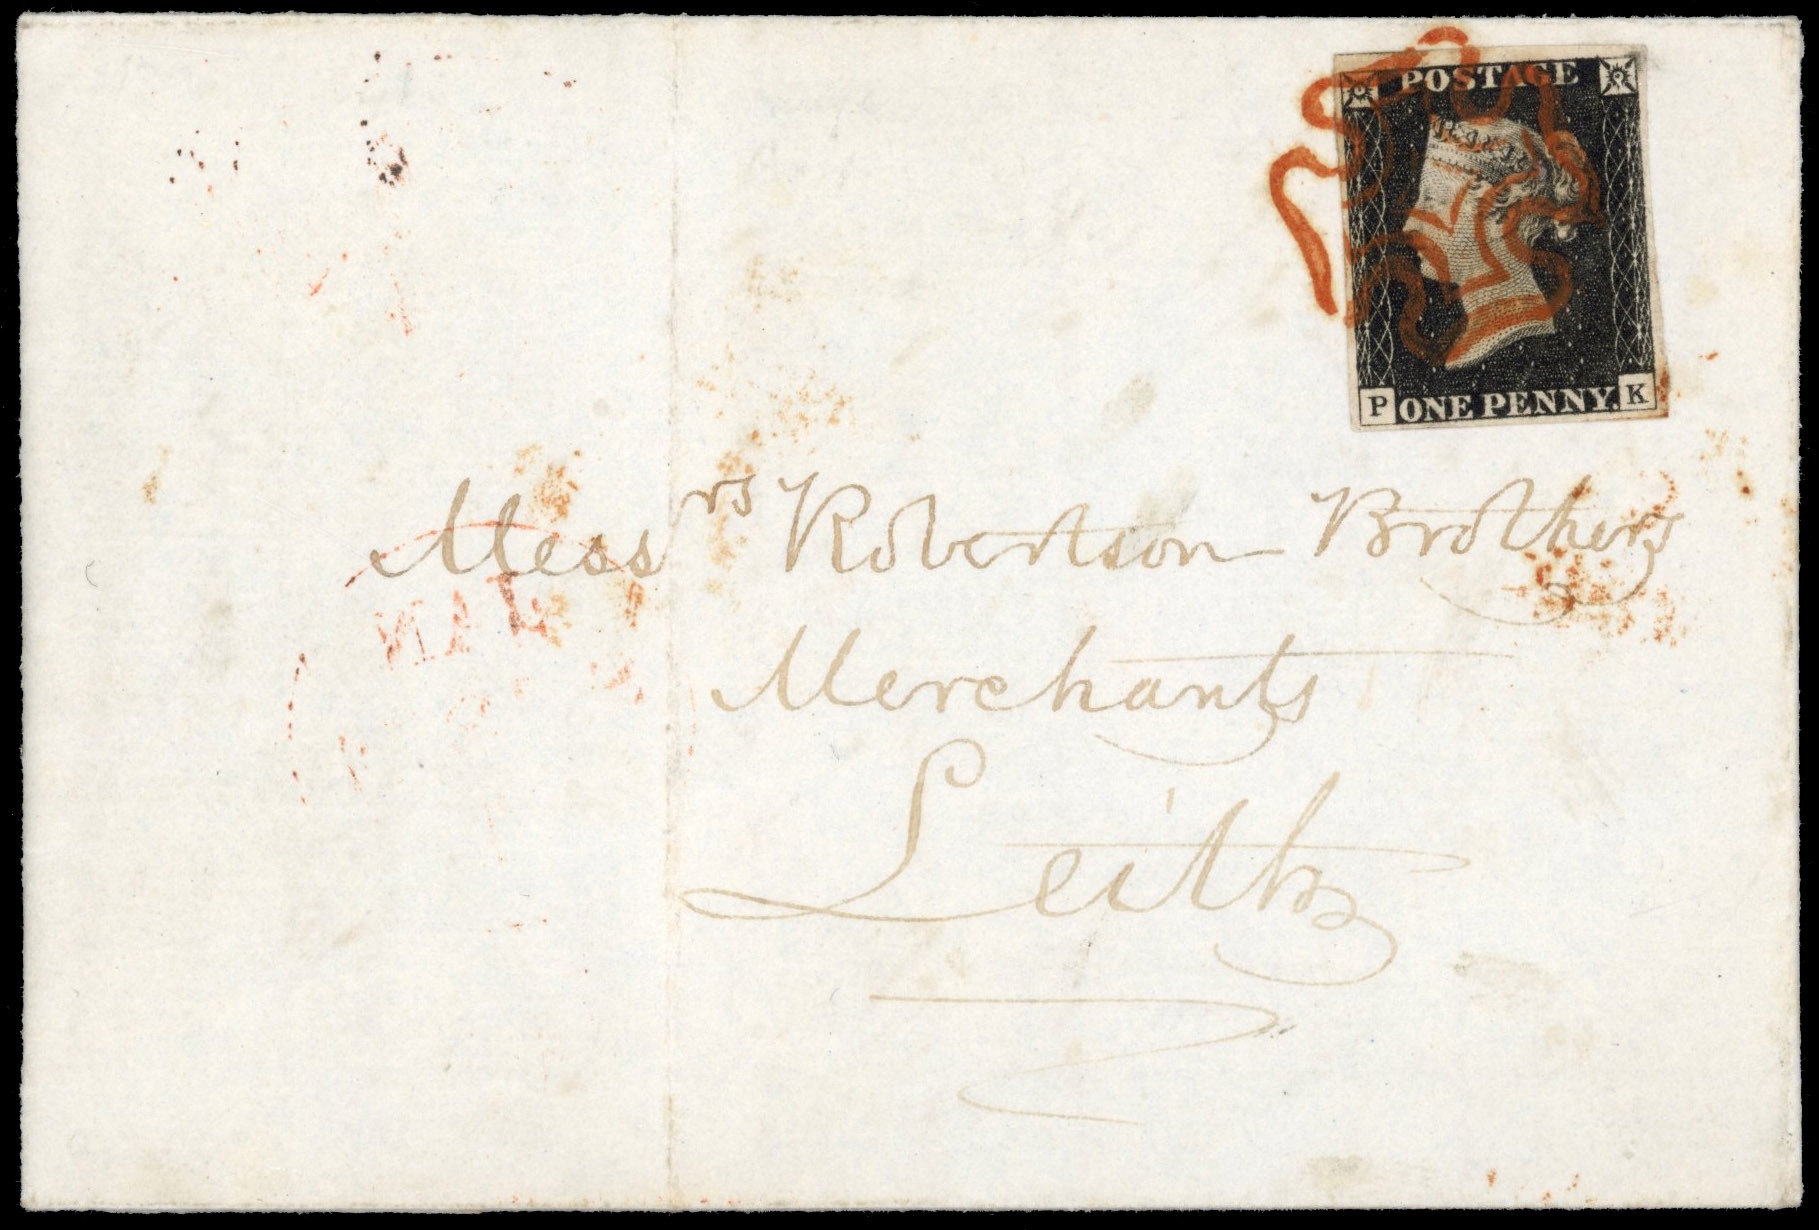 POSTAGE
P ONE PENNY. K
Messrs Robertson Brothers
Merchants
Leith